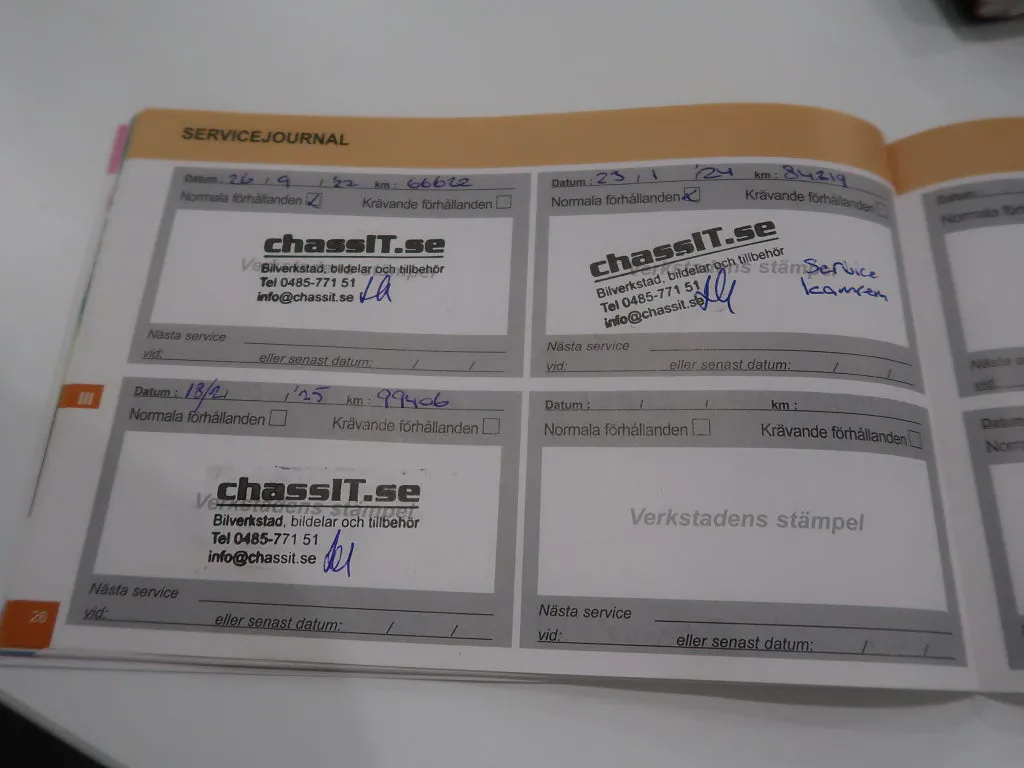 SERVICEJOURNAL
Datum : 26 / 9 / '22 km : 66622
Normala förhållanden Krävande förhållanden
chassIT.se
Verkstadens stämpel
Bilverkstad, bildelar och tillbehör
Tel 0485-771 51
info@chassit.se
Nästa service
vid: eller senast datum: / /
Datum : 23 / 1 / '24 km : 84219
Normala förhållanden Krävande förhållanden
chassIT.se
Verkstadens stämpel
Bilverkstad, bildelar och tillbehör
Tel 0485-771 51
info@chassit.se
Service
kamrem
Nästa service
vid: eller senast datum: / /
III
Datum : 18/2 / '25 km : 99406
Normala förhållanden Krävande förhållanden
chassIT.se
Verkstadens stämpel
Bilverkstad, bildelar och tillbehör
Tel 0485-771 51
info@chassit.se
Nästa service
vid: eller senast datum: / /
Datum : / / km :
Normala förhållanden Krävande förhållanden
Verkstadens stämpel
Nästa service
vid: eller senast datum: / /
26